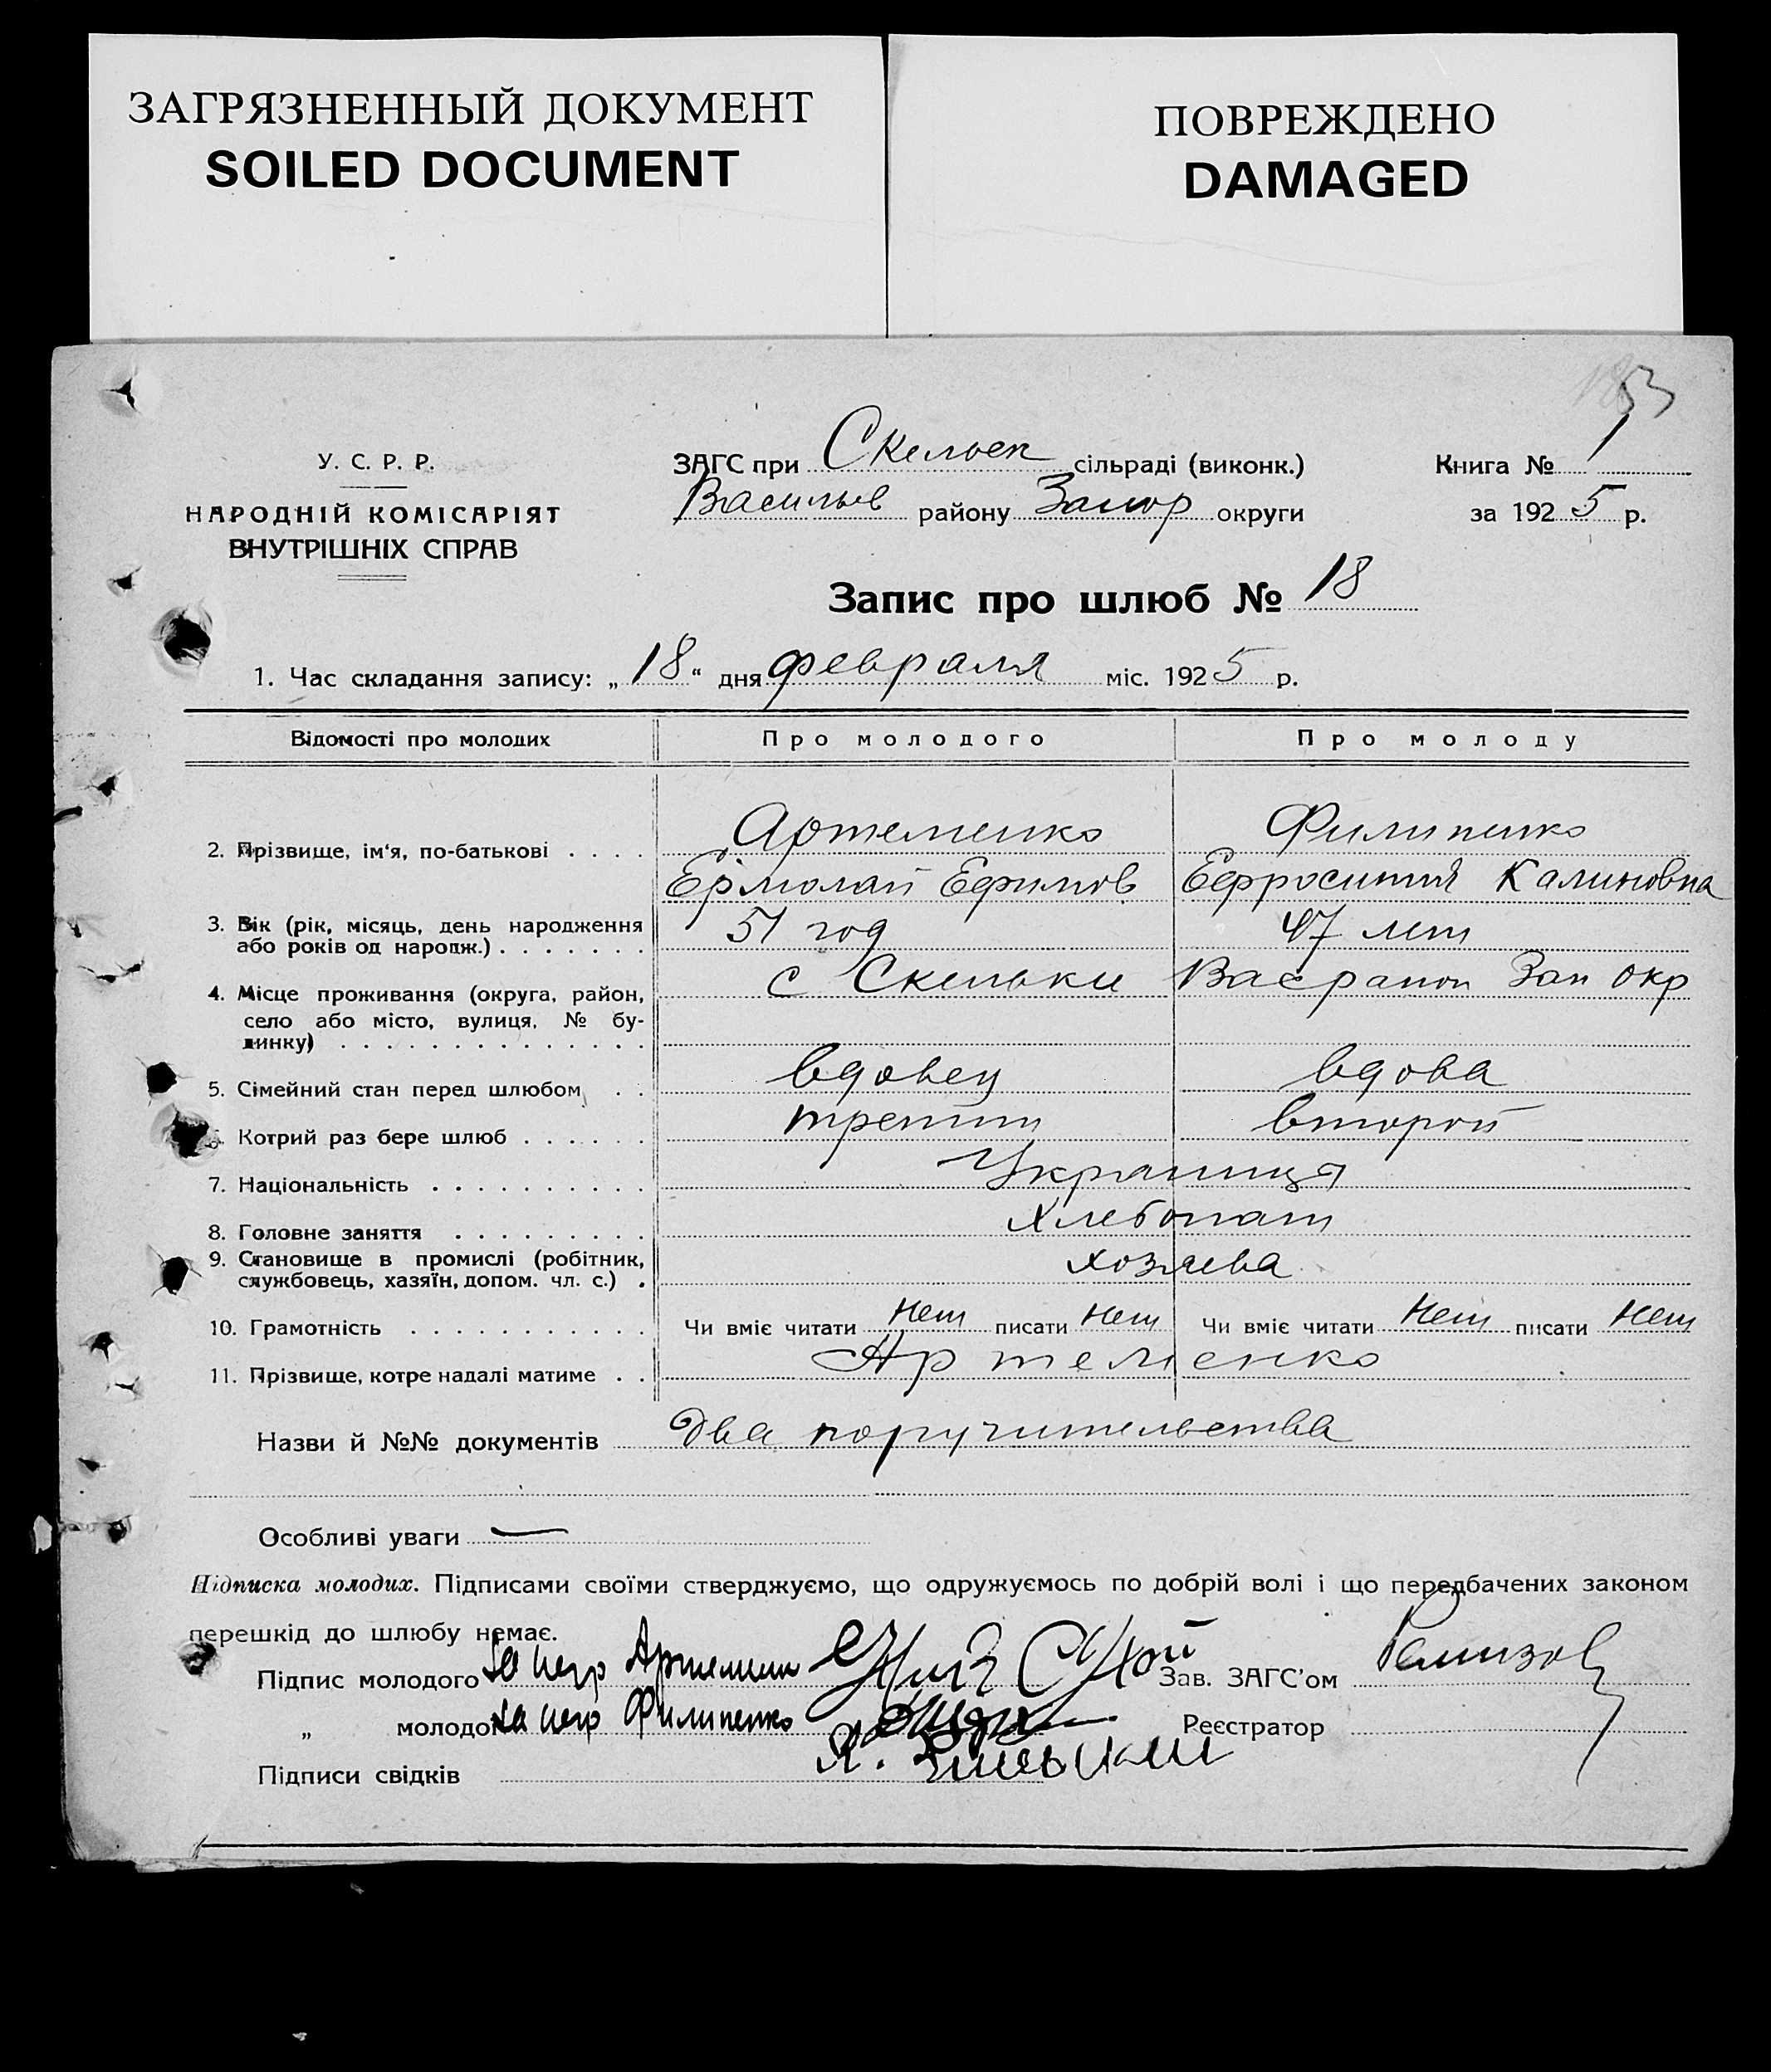 ЗАГРЯЗНЕННЫЙ ДОКУМЕНТ
SOILED DOCUMENT
ПОВРЕЖДЕНО
DAMAGED
У. С. Р. Р.
НАРОДНІЙ КОМІСАРІЯТ
ВНУТРІШНІХ СПРАВ
ЗАГС при Скельск сільраді (виконк.)
Васильев району Запор округи
Книга № 1
за 1925 р.
Запис про шлюб № 18
1. Час складання запису: „18“ дня февраля міс. 1925 р.
Відомості про молодих Про молодого Про молоду
2. Прізвище, ім‘я, по-батькові . . . . Артеменко Филипенко
Ермолай Ефимов Ефросиния Калиновна
3. Вік (рік, місяць, день народження
або років од народж.) . . . . . . . 51 год 47 лет
4. Місце проживання (округа, район, с Скельки Вас район Зап окр
село або місто, вулиця, № бу-
динку) . . . . . . . . . . . . . .
5. Сімейний стан перед шлюбом . . вдовец вдова
6. Котрий раз бере шлюб . . . . . . третий второй
7. Національність . . . . . . . . . . Украинця
8. Головне заняття . . . . . . . . . Хлебопаш
9. Становище в промислі (робітник,
службовець, хазяїн, допом. чл. с.) . хозяева
10. Грамотність . . . . . . . . . . . Чи вміє читати нет писати нет Чи вміє читати нет писати нет
11. Прізвище, котре надалі матиме . . Артеменко
Назви й №№ документів Два поручительства
Особливі уваги —
Підписка молодих. Підписами своїми стверджуємо, що одружуємось по добрій волі і що передбачених законом
перешкід до шлюбу немає.
Підпис молодого Артемен Зав. ЗАГС’ом
„ молодої Филипенко Реєстратор
Підписи свідків